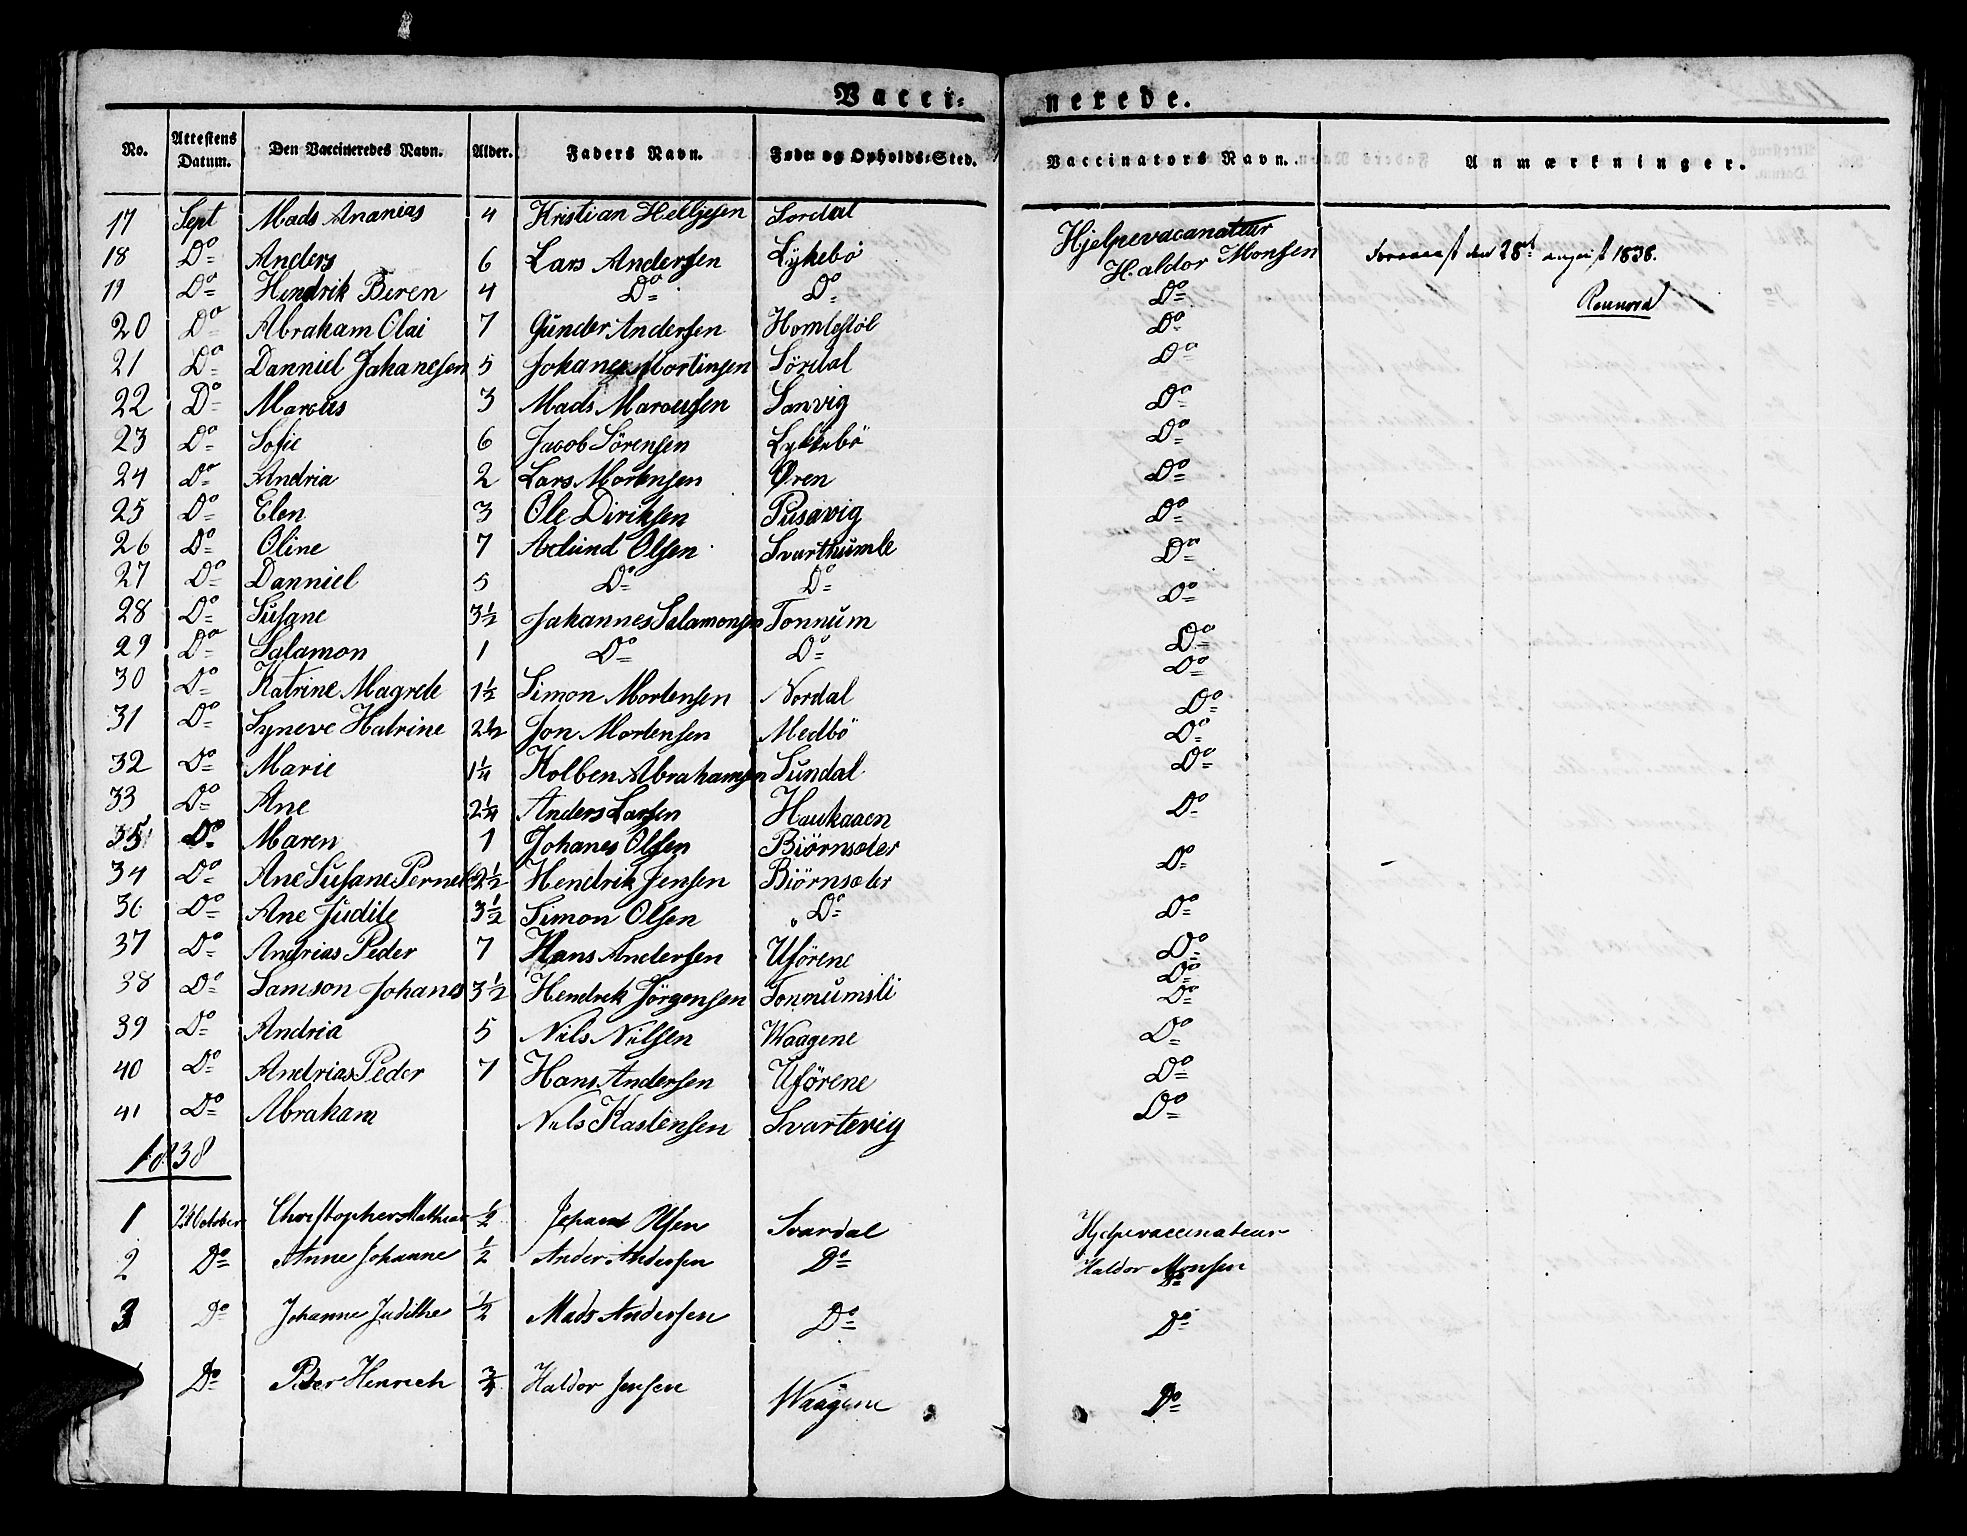 Vacci- nerede.
No. Attestens Datum. Den Vaccineredes Navn. Alder. Faders Navn. Føde og Opholds-Sted. Vaccinators Navn. Anmærkninger.
17 Sept Mads Ananias 4 Kristian Helljesen Sordal Hjelpevacanateur
18 Do Anders 6 Lars Andersen Lykebö Haldor Monsen den 28de august 1838.
19 Do Hendrik Beren 4 Do Do Do
20 Do Abraham Olai 7 Gunder Andersen Homlestöl Do
21 Do Danniel Johanesen 5 Johanes Mortinsen Sördal Do
22 Do Marcus 3 Mads Marcussen Sanvig Do
23 Do Sofie 6 Jacob Sörensen Lykkebö Do
24 Do Andria 2 Lars Mortensen Øren Do
25 Do Elen 3 Ole Diriksen Pusavig Do
26 Do Oline 7 Aslund Olsen Svarthumle Do
27 Do Danniel 5 Do Do Do
28 Do Susane 3½ Johannes Salamonsen Tonnum
29 Do Salamon 1 Do Do Do
30 Do Katrine Magrete 1½ Simon Mortensen Nordal Do
31 Do Syneve Katrine 2½ Jon Mortensen Medbö Do
32 Do Marie 1¼ Kolben Abrahamsen Sundal Do
33 Do Ane 2¼ Anders Larsen Haukaaen Do
35 Do Maren 1 Johanes Olsen Biörnsæter
34 Do Ane Susane Pernele 2½ Hendrik Jensen Biörnsæter Do
36 Do Ane Judite 3½ Simon Olsen Do Do
37 Do Andrias Peder 7 Hans Andersen Uförene Do
38 Do Samson Johanes 3½ Hendrek Jörgensen Tonnumsli Do
39 Do Andria 5 Nils Nilsen Waagene Do
40 Do Andrias Peder 7 Hans Andersen Uförene Do
41 Do Abraham Nils Kastensen Svartevig Do
1838
1 24 October Christopher Mathias ½ Olsen Svardal Hjelpevaccinateur
2 Do Anne Johanne ½ Ander Andersen Do Haldor Monsen
Do
3 Do Johanne Judithe ½ Mads Andersen Do Do
Do Peder Henrich ¾ Haldor Jensen Waagene Do